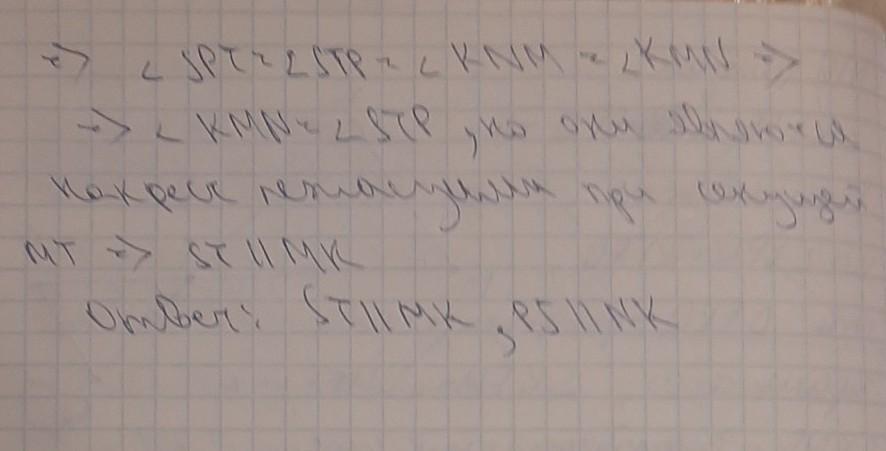 => ∠SPT = ∠STP = ∠KNM = ∠KMN =>
=> ∠KMN = ∠STP, но они являются
накрест лежащими при секущей
MT => ST || MK
Ответ: ST || MK, PS || NK